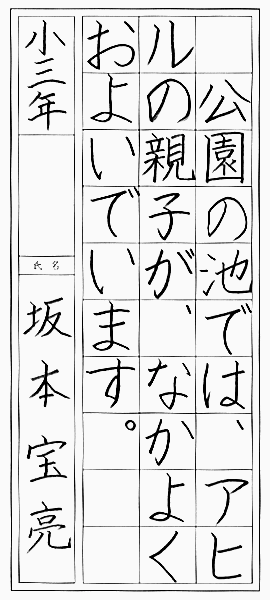 公園の池では、アヒ
ルの親子が、なかよく
およいでいます。
小三年
氏名
坂本宝亮